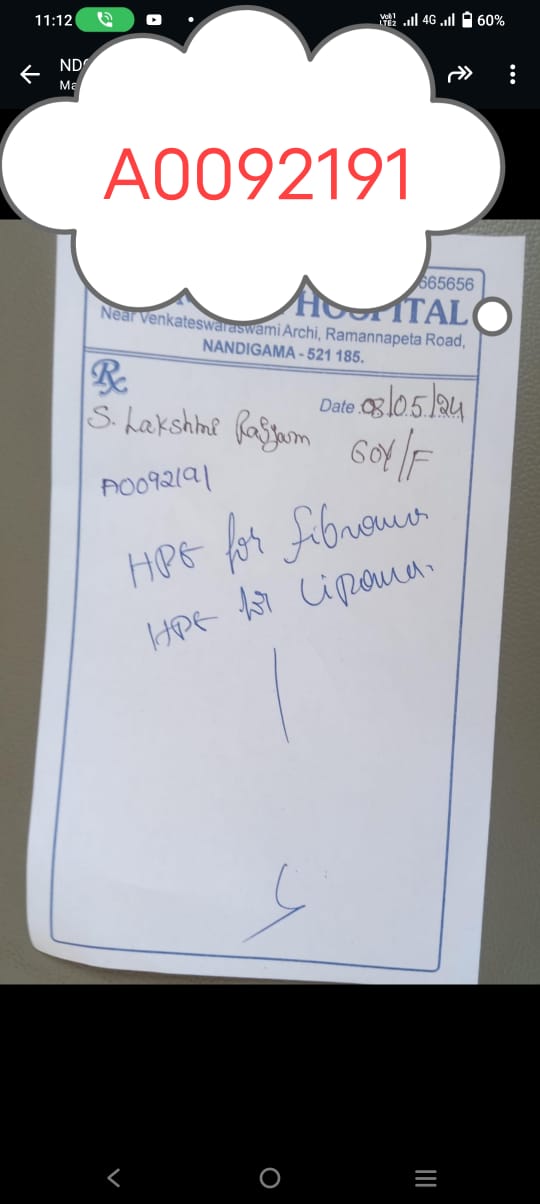 11:12
VoI1 LTE2 4G 60%
ND
Ma
A0092191
665656
HOSPITAL
Near Venkateswaraswami Archi, Ramannapeta Road,
NANDIGAMA - 521 185.
Rx
Date 08/05/24
S. Lakshmi Rajyam 60Y/F
A0092191
HPE for fibroma
HPE for Lipoma.